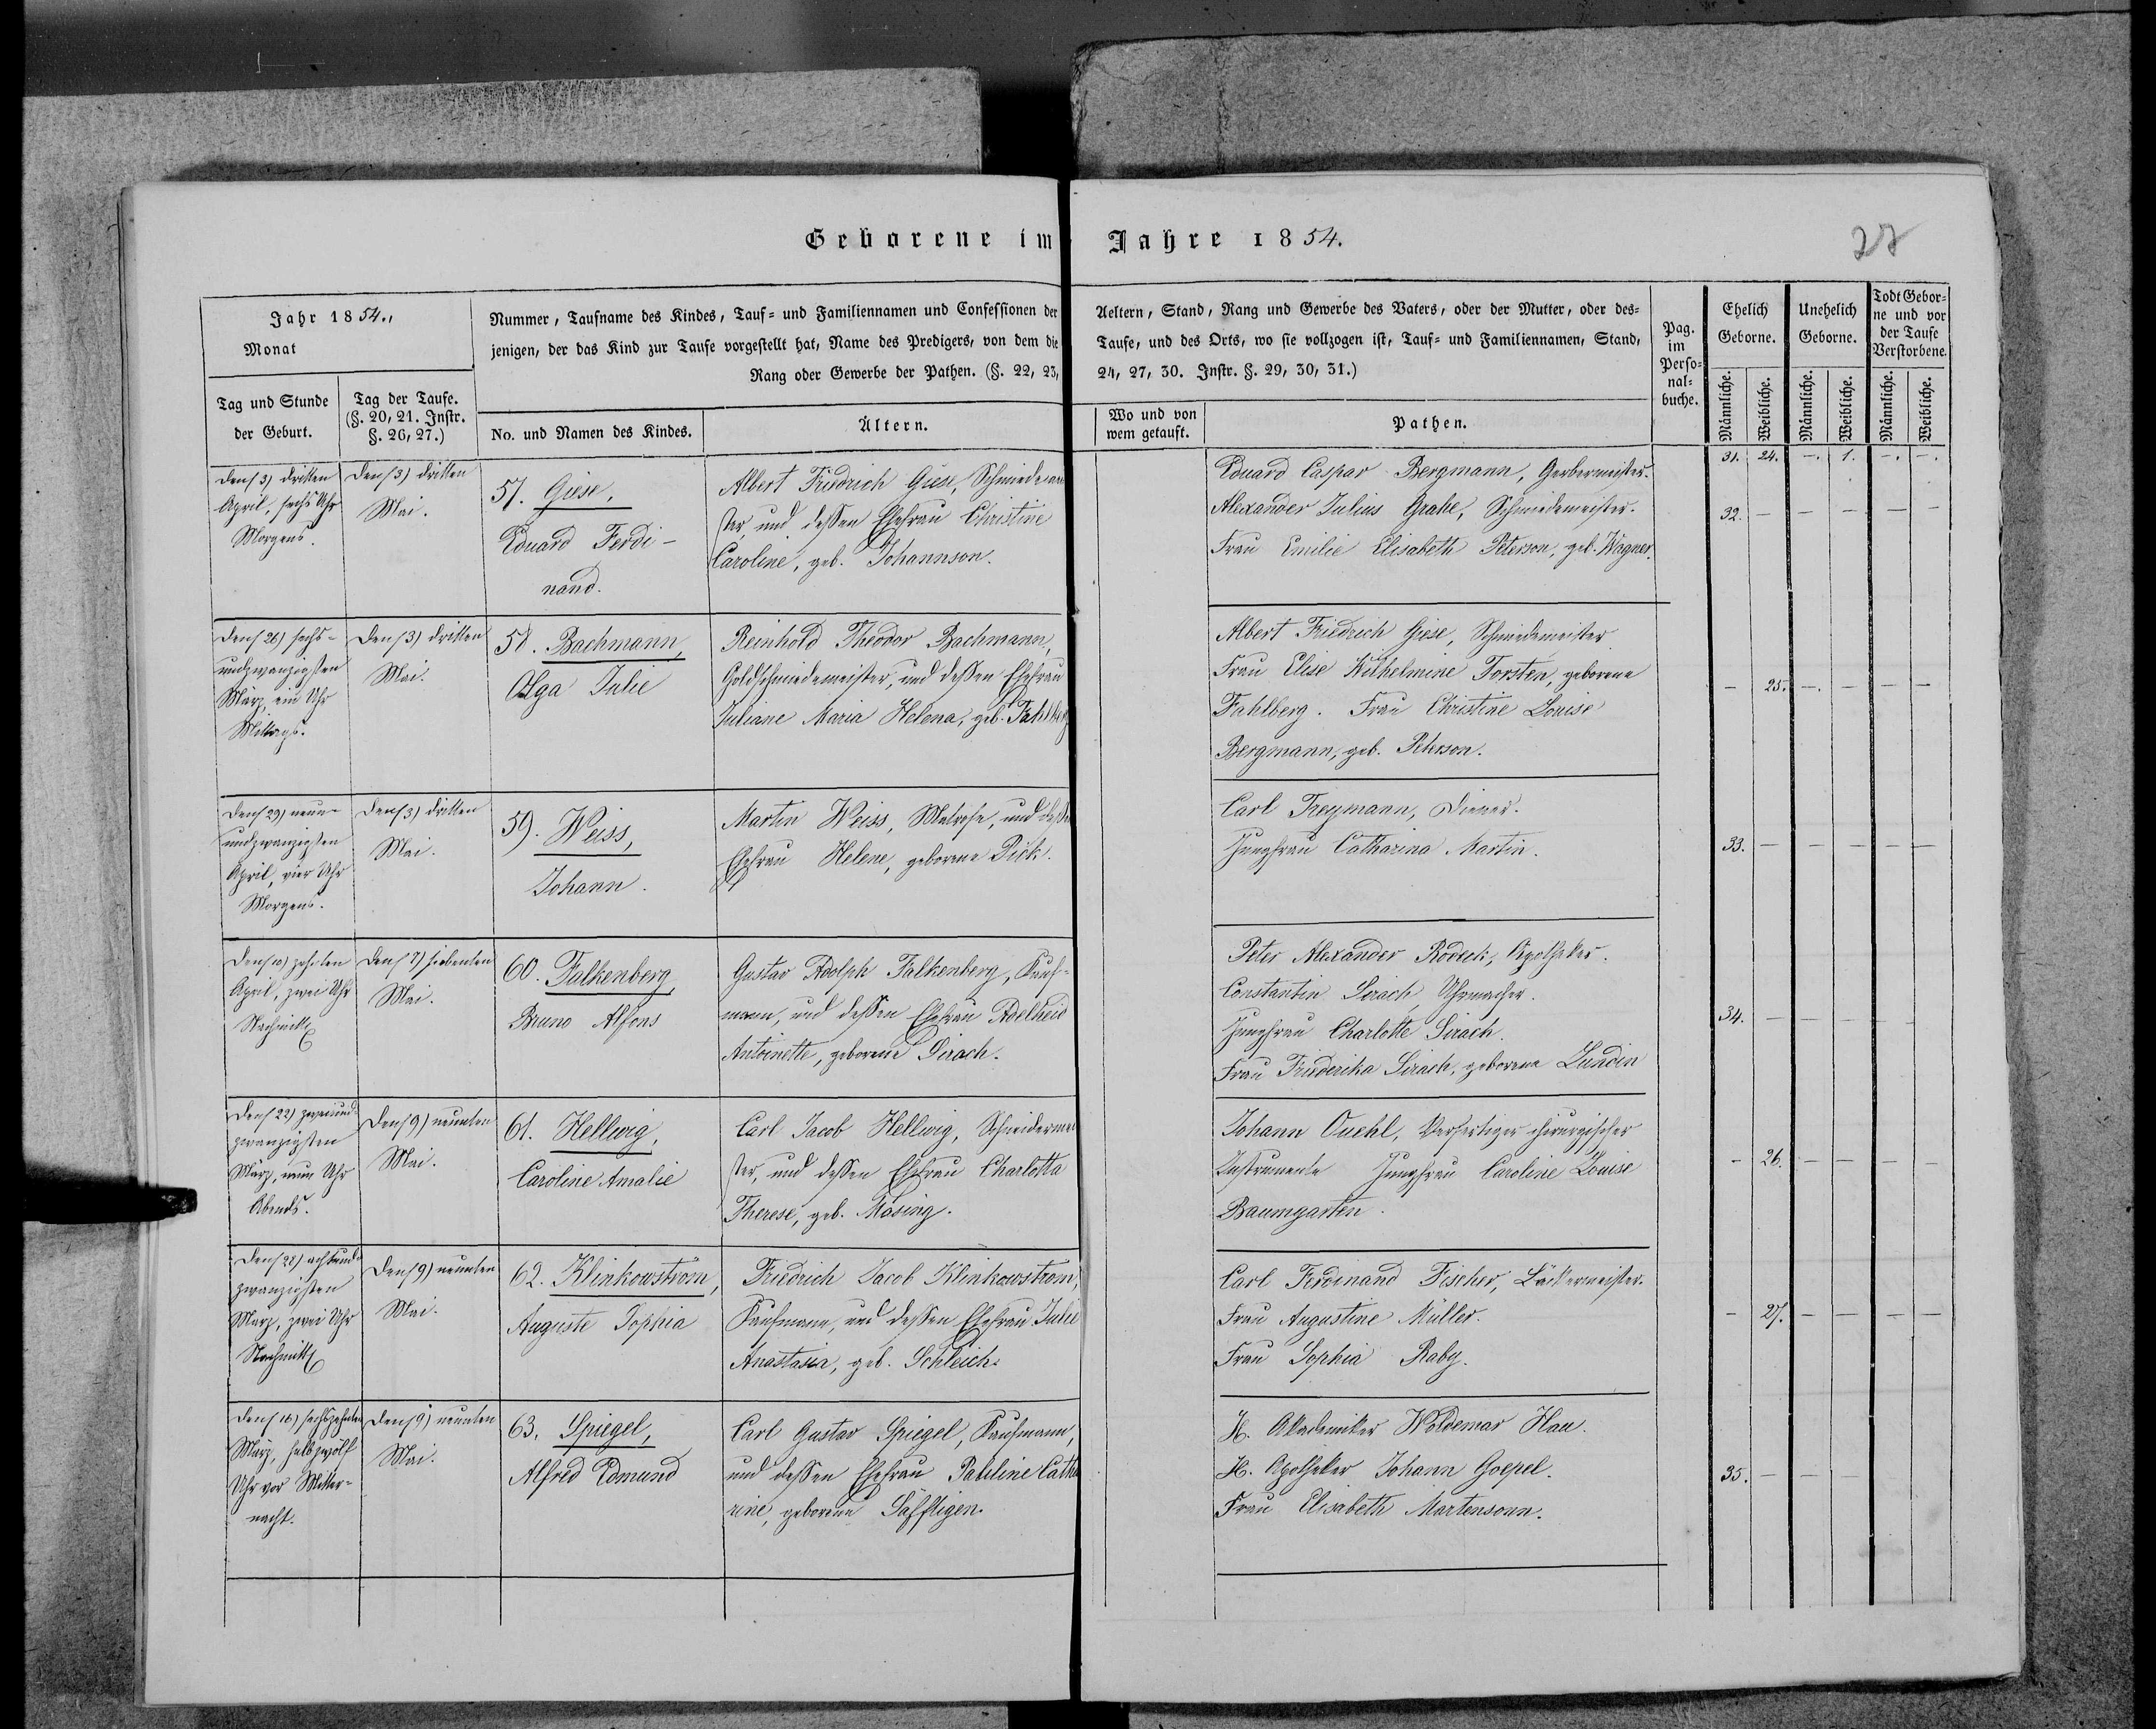 Geborene im Jahre 1854.
27
Jahr 1854.,
Monat
Tag und Stunde
der Geburt.
Tag der Taufe.
(§. 20, 21. Instr.
§. 26, 27.)
Nummer, Taufname des Kindes, Tauf- und Familiennamen und Confessionen der
jenigen, der das Kind zur Taufe vorgestellt hat, Name des Predigers, von dem die
Rang oder Gewerbe der Pathen. (§. 22, 23,
No. und Namen des Kindes.
Ältern.
Aeltern, Stand, Rang und Gewerbe des Vaters, oder der Mutter, oder des-
Taufe, und des Orts, wo sie vollzogen ist, Tauf- und Familiennamen, Stand,
24, 27, 30. Instr. §. 29, 30, 31.)
Wo und von
wem getauft.
Pathen.
Pag.
im
Perso-
nal-
buche.
Ehelich
Geborne.
Unehelich
Geborne.
Todt Gebor-
ne und vor
der Taufe
Verstorbene.
Männliche.
Weibliche.
Männliche.
Weibliche.
Männliche.
Weibliche.
31. 24. —. 1. —. —.
Den (3) dritten
April, sechs Uhr
Morgens.
Den (3) dritten
Mai.
57. Giese,
Eduard Ferdi-
nand.
Albert Friedrich Giese, Schmiedemei
ster, und dessen Ehefrau Christine
Caroline, geb. Johannson.
Eduard Caspar Bergmann, Gerbermeister.
Alexander Julius Grahe, Schmiedemeister.
Frau Emilie Elisabeth Peterson, geb. Wagner.
32. — — — — —
Den (26) sechs-
undzwanzigsten
März, ein Uhr
Mittags.
Den (3) dritten
Mai.
58. Bachmann,
Olga Julie
Reinhold Theodor Bachmann,
Goldschmiedemeister, und dessen Ehefrau
Juliane Maria Helena, geb. Fahlberg
Albert Friedrich Giese, Schmiedemeister
Frau Elise Wilhelmine Torsten, geborene
Fahlberg. Frau Christine Louise
Bergmann, geb. Peterson.
— 25. —. — — —
Den (29) neun-
undzwanzigsten
April, vier Uhr
Morgens.
Den (3) dritten
Mai.
59. Weiss,
Johann.
Martin Weiss, Matrose, und dessen
Ehefrau Helene, geborene Dick.
Carl Freymann, Diener.
Jungfrau Catharina Martin.
33. — — — — —
Den (10) zehnten
April, zwei Uhr
Nachmitt
Den (7) siebenten
Mai.
60. Falkenberg,
Bruno Alfons
Gustav Adolph Falkenberg, Kauf-
mann, und dessen Ehefrau Adelheid
Antoinette, geborene Sirach.
Peter Alexander Rodeck, Apotheker.
Constantin Sirach, Uhrmacher.
Jungfrau Charlotte Sirach.
Frau Friederika Sirach, geborene Lundin
34. — — — — —
Den (22) zweiund-
zwanzigsten
März, neun Uhr
Abends.
Den (9) neunten
Mai.
61. Hellwig,
Caroline Amalie
Carl Jacob Hellwig, Schneidermei
ster, und dessen Ehefrau Charlotta
Therese, geb. Mösing.
Johann Quehl, Verfertiger chirurgischer
Instrumente Jungfrau Caroline Louise
Baumgarten.
— 26. — — — —
Den (28) achtund-
zwanzigsten
März, zwei Uhr
Nachmitt
Den (9) neunten
Mai.
62. Klinkowström,
Auguste Sophia
Friedrich Jacob Klinkowström,
Kaufmann, und dessen Ehefrau Julie
Anastasia, geb. Schleich.
Carl Ferdinand Fischer, Bäckermeister.
Frau Augustine Müller.
Frau Sophia Raby.
— 27. — — — —
Den (16) sechszehnten
März, halb zwölf
Uhr vor Mitter-
nacht.
Den (9) neunten
Mai.
63. Spiegel,
Alfred Edmund
Carl Gustav Spiegel, Kaufmann,
und dessen Ehefrau Pauline Catha
rine, geborene Säfftigen.
H. Akademiker Woldemar Hau.
H. Apotheker Johann Goepel.
Frau Elisabeth Martensonn.
35. — — — — —